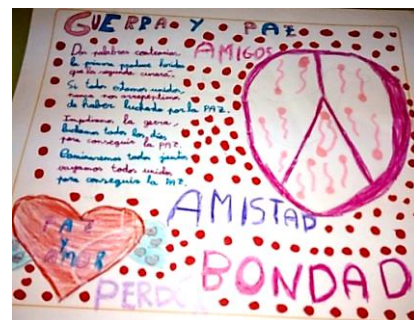 GUERRA Y PAZ
AMIGOS
Dos palabras contrarias
la primera produce heridas
que la segunda curará.
Si todos estamos unidos
nunca nos arrepentiremos
de haber luchado por la PAZ.
Impidamos la guerra,
luchemos todos los días
para conseguir la PAZ.
Caminaremos todos juntos
vayamos todos unidos
para conseguir la PAZ.
AMISTAD
PAZ
Y
AMOR
BONDAD